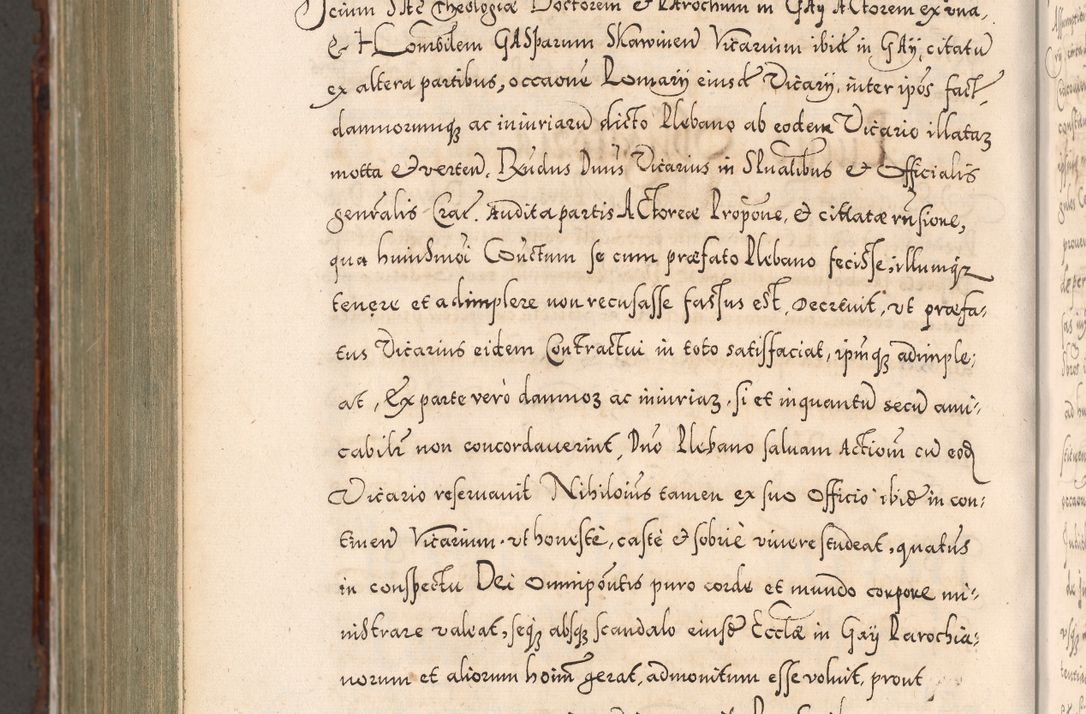 Scium Sae Theologiæ Doctorem et Parochum in Gay Actorem ex una,
& Honorabilem Gasparum Skawinen Vicarium ibid in Gay, citatu
ex altera partibus, occaone Romarij eiusd Vicarÿ, inter ipos fact
damnorumq ac iniuriaru dicto Plebano ab eodem Vicario illataꝝ
motta & verten. Rndus Dnus Vicarius in Spualibus et Officialis
genralis Crac. Audita partis Actoreæ Propone, et cittatæ rnsione,
qua huiusmoi Contctum se cum præfato Plebano fecisse, illumqz
tenere et adimplere non recusasse fassus est, Decrevit, ut præfa-
tus Vicarius eidem Contractui in toto satisfaciat, ipmq adimple-
at, Ex parte verò damnoꝝ ac iniuriaꝝ, si et inquantu secu ami-
cabilr non concordaverint, Dno Plebano salvam Actiom cu eod
Vicario reservavit Nihiloius tamen ex suo Officio ibid in con-
tinen Vicarium, ut honestè, castè & sobriè vivere studeat, quatus
in conspectu Dei Omnipontis puro corde et mundo corpore mi-
nistrare valeat, seq absq scandalo eiusd Ecclæ in Gay Parochia-
norum et aliorum hoim gerat, admonitum esse voluit, prout